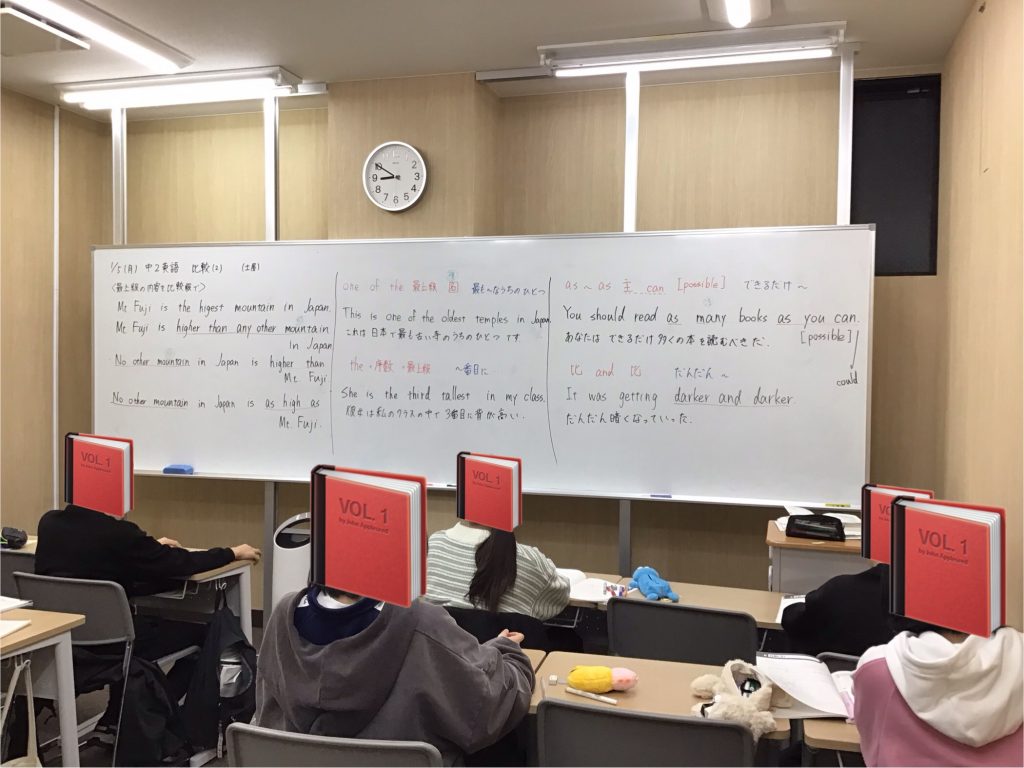 1/5(月) 中2英語 比較(2) (土屋)
<最上級の内容を比較級で>
Mt. Fuji is the higest mountain in Japan.
Mt. Fuji is higher than any other mountain
in Japan
No other mountain in Japan is higher than
Mt. Fuji.
No other mountain in Japan is as high as
Mt. Fuji.
one of the 最上級 複
最も〜なうちのひとつ
This is one of the oldest temples in Japan
これは日本で最も古い寺のうちのひとつです
the + 序数 + 最上級 〜番目に…
She is the third tallest in my class.
彼女は私のクラスの中で3番目に背が高い.
as 〜 as 主 can [possible] できるだけ〜
You should read as many books as you can.
[possible]
あなたはできるだけ多くの本を読むべきだ.
could
比 and 比 だんだん〜
It was getting darker and darker.
だんだん暗くなっていった.
12
1
2
3
4
5
6
7
8
9
10
VOL. 1
VOL. 1
by John Appleseed
VOL. 1
VOL. 1
VOL. 1
by John Appleseed